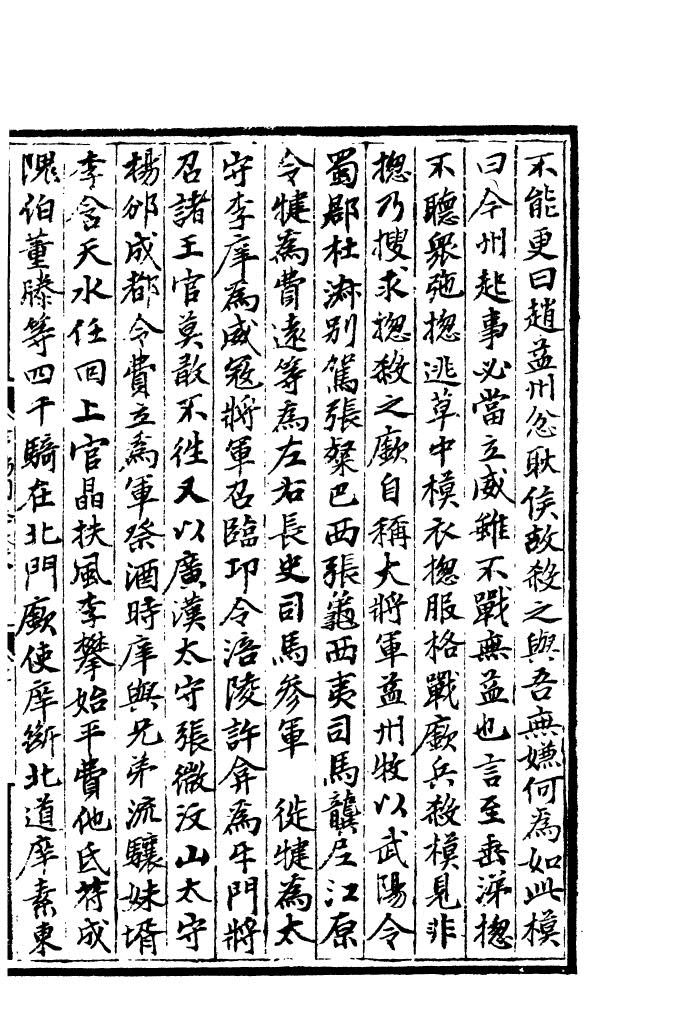 不能更曰趙益州忿耿侯故殺之與吾無嫌何為如此模
曰今州起事必當立威雖不戰無益也言至垂涕摠
不聽衆弛摠逃草中模衣摠服格戰廞兵殺模見非
摠乃搜求摠殺之廞自稱大將軍益州牧以武陽令
蜀郡杜淑别駕張粲巴西張龜西夷司馬龔尼江原
令犍為費遠等為左右長史司馬參軍 徙犍為太
守李庠為威冦將軍召臨邛令涪陵許弇為牙門將
召諸王官莫敢不徃又以廣漢太守張微汶山太守
楊邠成都令費立為軍祭酒時庠與兄弟流驤妹壻
李含天水任回上官晶扶風李攀始平費他氐苻成
隗伯董勝等四千騎在北門廞使庠斷北道庠素東